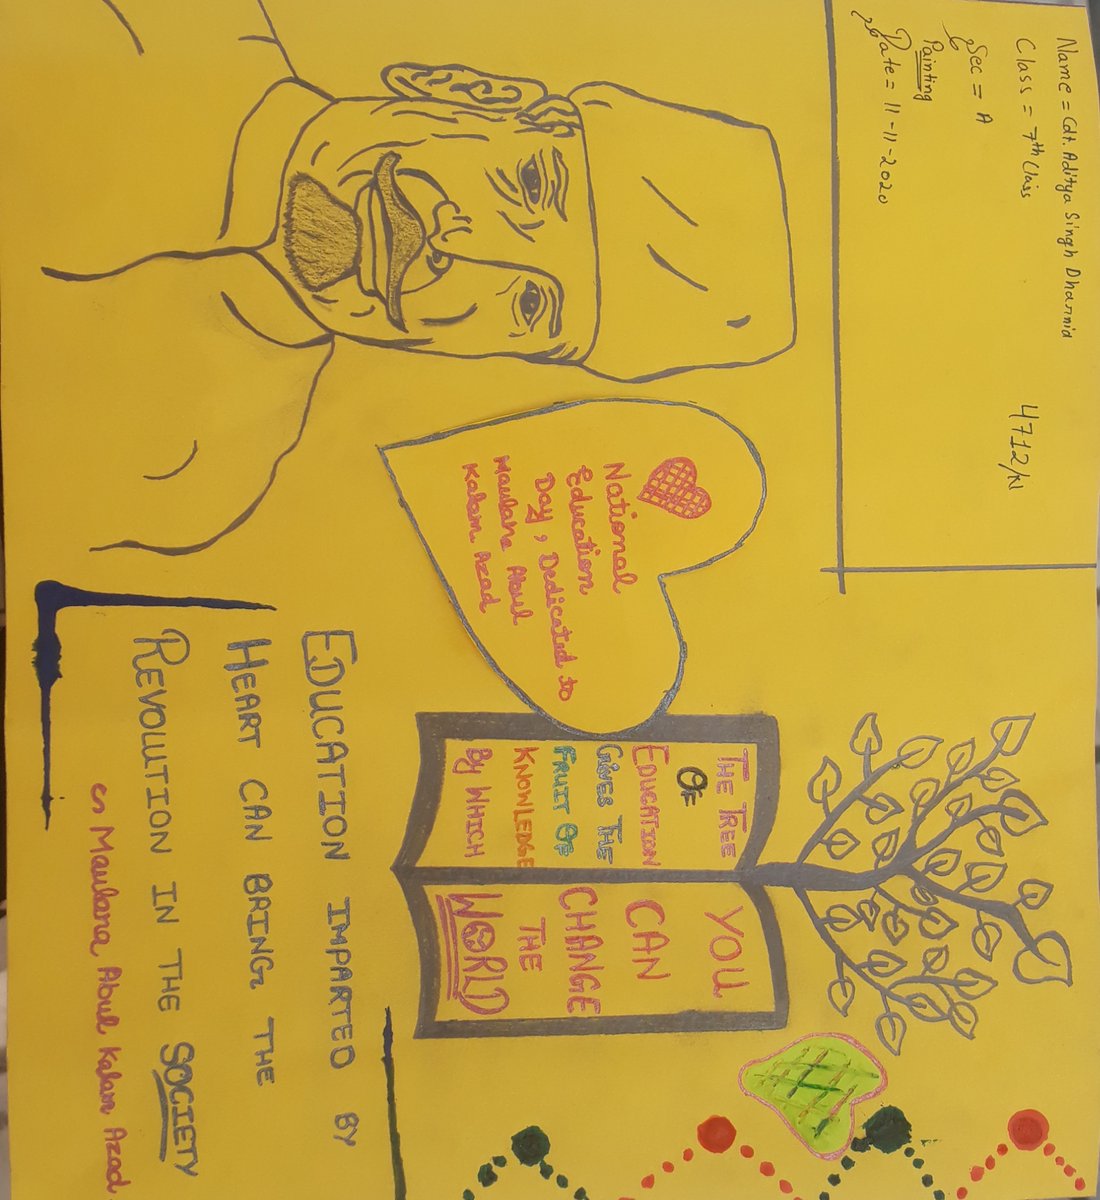 Name = Cdt. Aditya Singh Dharnia
Class = 7th Class
4712/KI
Sec = A
Painting
Date = 11-11-2020
National
Education
Day, Dedicated to
Maulana Abul
Kalam Azad
THE TREE
OF
EDUCATION
GIVES THE
FRUIT OF
KNOWLEDGE
BY WHICH
YOU
CAN
CHANGE
THE
WORLD
EDUCATION IMPARTED BY
HEART CAN BRING THE
REVOLUTION IN THE SOCIETY
~ Maulana Abul Kalam Azad